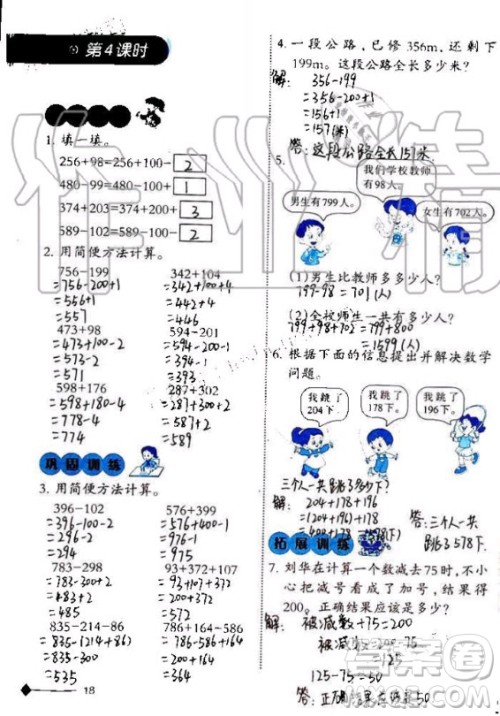 第4课时
1. 填一填。
256+98=256+100-2
480-99=480-100+1
374+203=374+200+3
589-102=589-100-2
2. 用简便方法计算。
756-199 342+104
=756-200+1 =342+100+4
=556+1 =442+4
=557 =446
473+98 594-201
=473+100-2 =594-200-1
=573-2 =394-1
=571 =393
598+176 287+302
=598+180-4 =287+300+2
=778-4 =587+2
=774 =589
巩固训练
3. 用简便方法计算。
396-102 576+399
=396-100-2 =576+400-1
=296-2 =976-1
=294 =975
583-98 93+372+107
=583-100+2 =93+107+372
=483+2 =200+372
=485 =572
835-214-86 786+164-586
=835-(214+86) =786-586+164
=835-300 =200+164
=535 =364
18
4. 一段公路，已修356m，还剩下
199m。这段公路全长多少米？
解: 356-199
=356-200+1
=156+1
=157(米)
答: 这段公路全长157米
5.
我们学校教师
有98人。
男生有799人。
女生有702人。
(1)男生比教师多多少人？
799-98=701(人)
(2)全校师生一共有多少人？
799+98+702=799+800
=1599(人)
6. 根据下面的信息提出并解决数学
问题。
我跳了
204下。
我跳了
178下。
我跳了
196下。
三个人一共跳了多少下?
解: 204+178+196
=(204+196)+178
答: 三个人一共
跳了578下
拓展训练
7. 刘华在计算一个数减去75时，不小
心把减号看成了加号，结果得
200。正确结果应该是多少？
解: 被减数+75=200
被减数=200-75
=125
125-75=50
答: 正确结果应该是50
作业精
答案圈